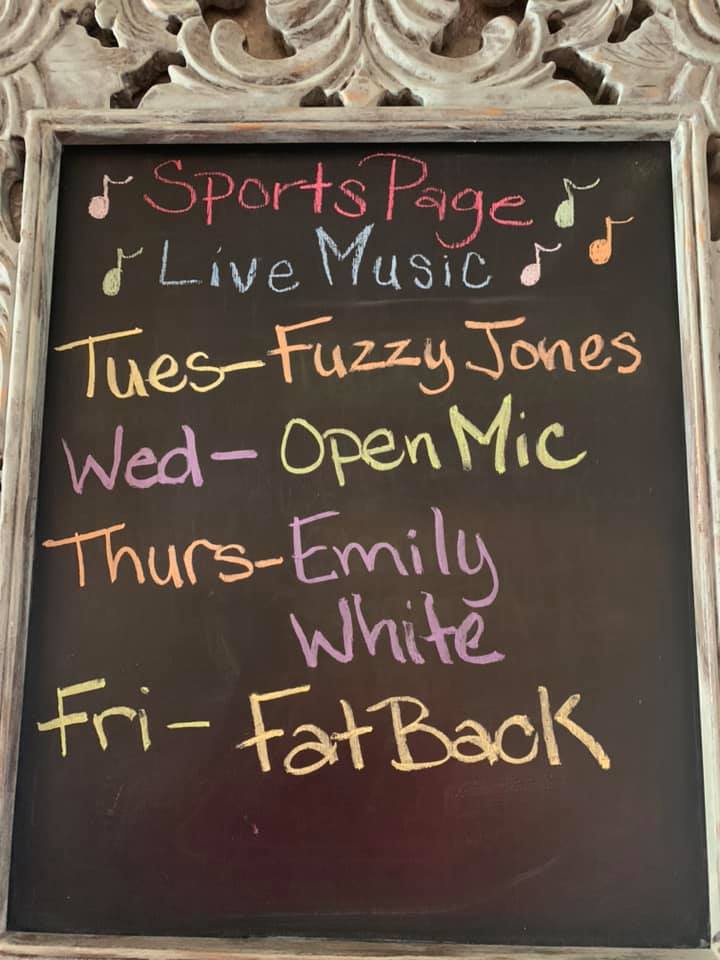 Sports Page
Live Music
Tues- Fuzzy Jones
Wed- Open Mic
Thurs- Emily
White
Fri- Fat Back